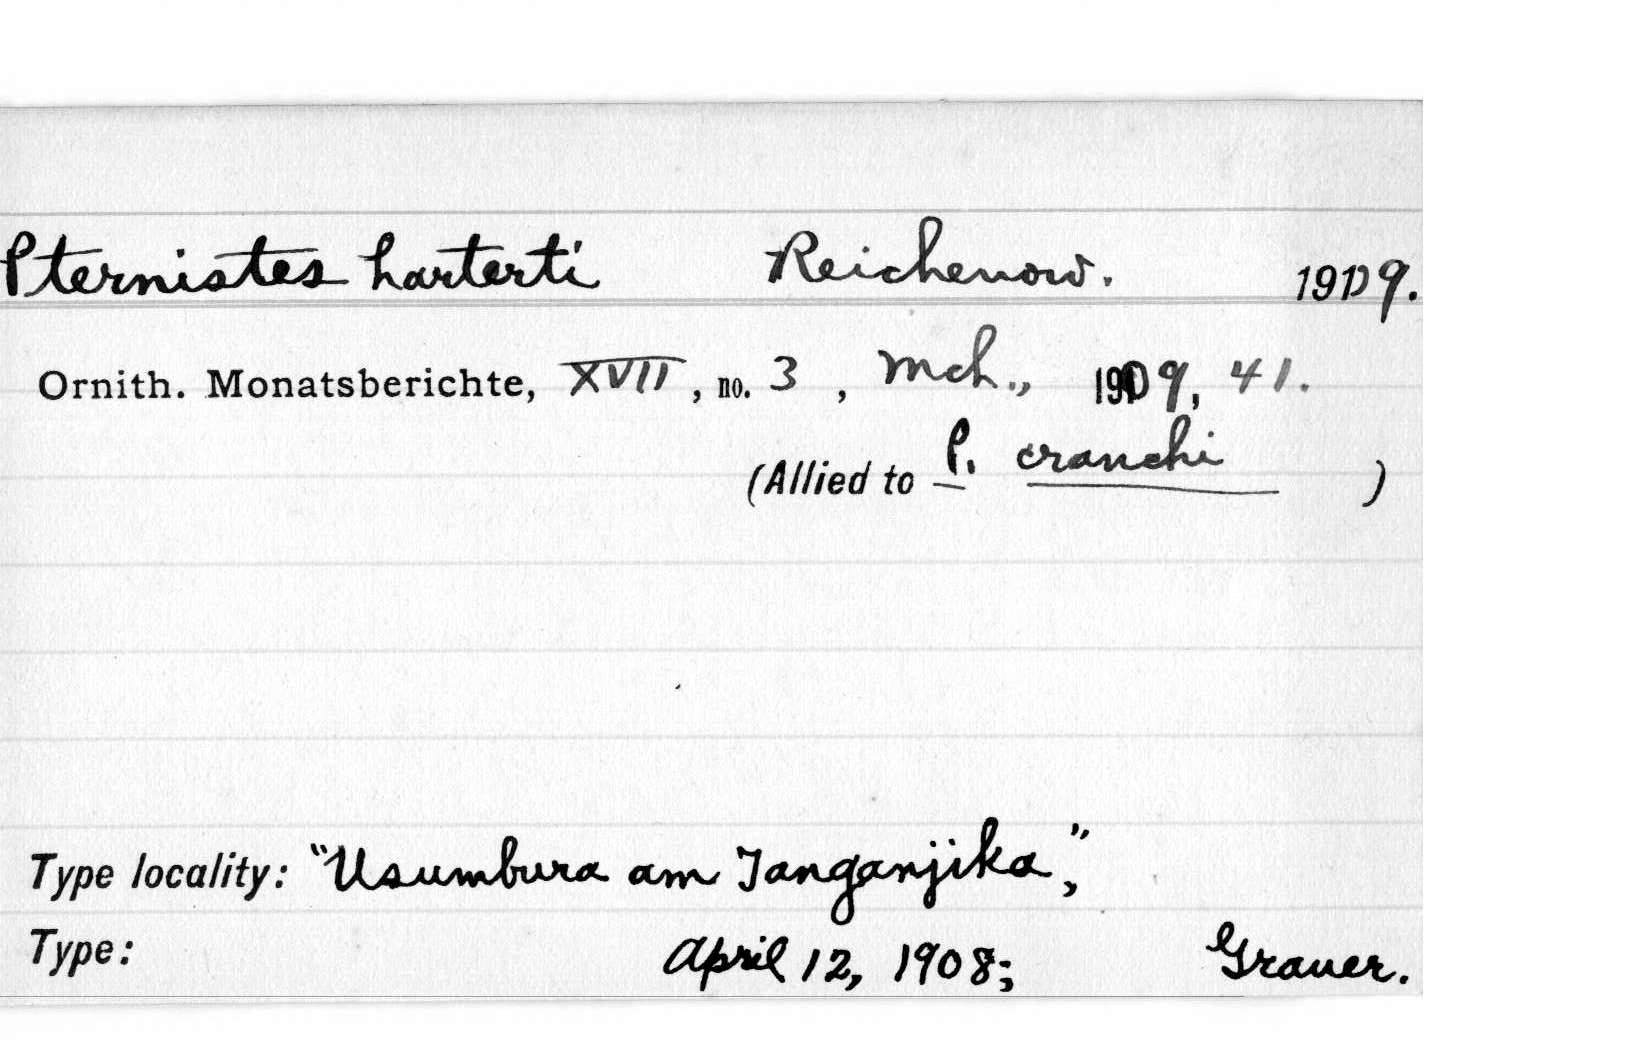 Pternistes harterti Reichenow. 1909.
Ornith. Monatsberichte, XVII, no. 3, Mch., 1909, 41.
(Allied to P. cranchi )
Type locality: "Usumbura am Tanganjika,"
Type: April 12, 1908; Grauer.